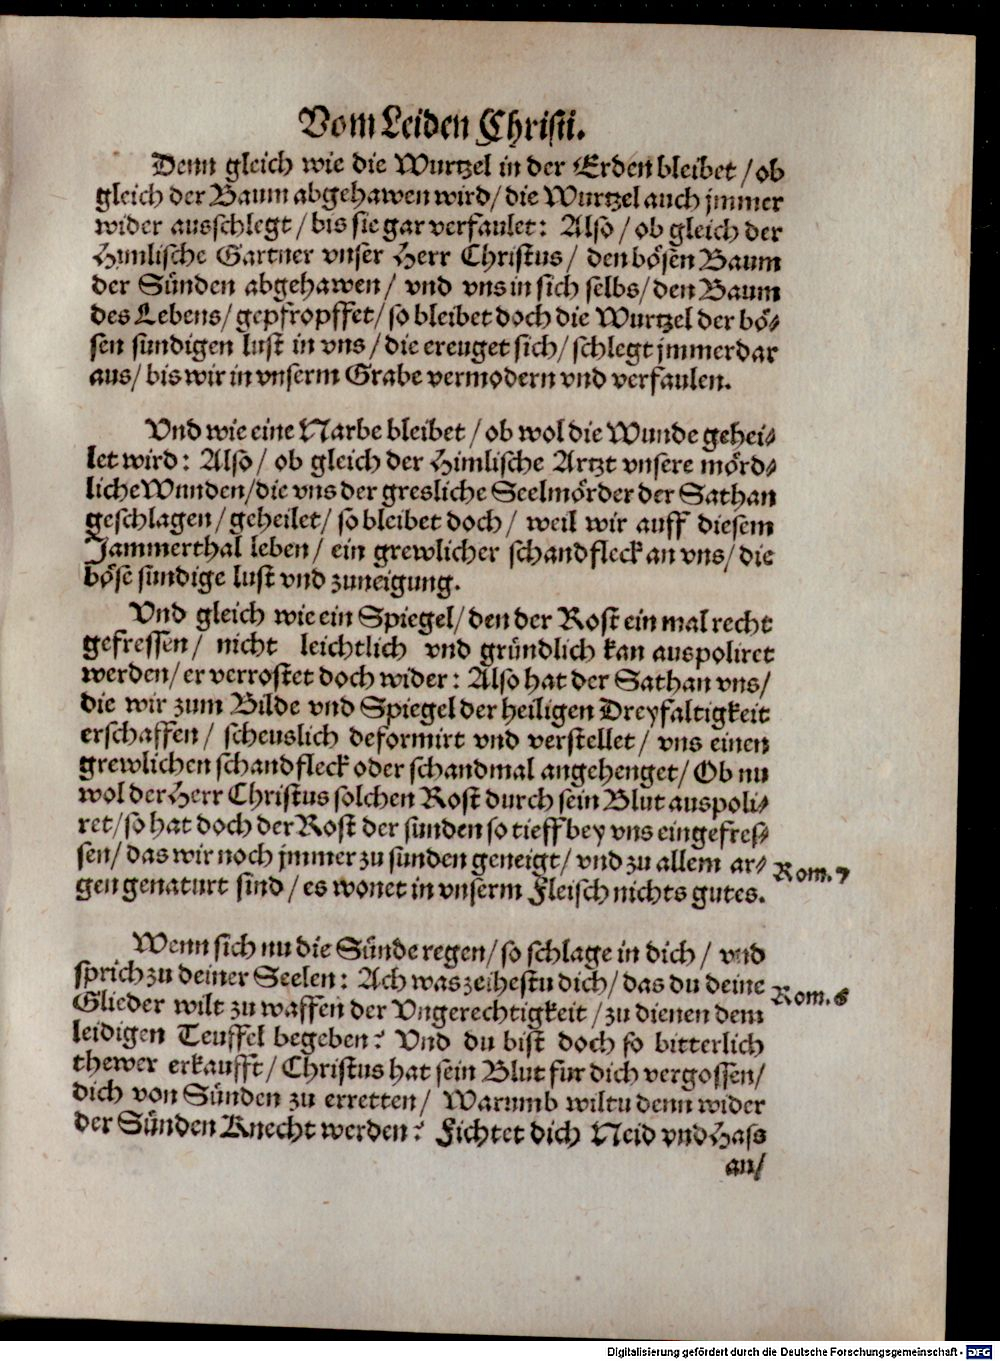 Vom Leiden Christi.
Denn gleich wie die Wurtzel in der Erden bleibet / ob
gleich der Baum abgehawen wird / die Wurtzel auch jmmer
wider ausschlegt / bis sie gar verfaulet: Also / ob gleich der
Himlische Gartner vnser Herr Christus / den bösen Baum
der Sünden abgehawen / vnd vns in sich selbs / den Baum
des Lebens / gepfropffet / so bleibet doch die Wurtzel der bö⸗
sen sundigen lust in vns / die ereuget sich / schlegt jmmerdar
aus / bis wir in vnserm Grabe vermodern vnd verfaulen.
Vnd wie eine Narbe bleibet / ob wol die Wunde gehei⸗
let wird: Also / ob gleich der Himlische Artzt vnsere mörd⸗
liche Wunden / die vns der gresliche Seelmörder der Sathan
geschlagen / geheilet / so bleibet doch / weil wir auff diesem
Jammerthal leben / ein grewlicher schandfleck an vns / die
böse sundige lust vnd zuneigung.
Vnd gleich wie ein Spiegel / den der Rost ein mal recht
gefressen / nicht leichtlich vnd gründlich kan auspoliret
werden / er verrostet doch wider: Also hat der Sathan vns /
die wir zum Bilde vnd Spiegel der heiligen Dreyfaltigkeit
erschaffen / scheuslich deformirt vnd verstellet / vns einen
grewlichen schandfleck oder schandmal angehenget / Ob nu
wol der Herr Christus solchen Rost durch sein Blut auspoli⸗
ret / so hat doch der Rost der sunden so tieff bey vns eingefres⸗
sen / das wir noch jmmer zu sunden geneigt / vnd zu allem ar⸗
gen genaturt sind / es wonet in vnserm Fleisch nichts gutes.
Rom. 7
Wenn sich nu die Sünde regen / so schlage in dich / vnd
sprich zu deiner Seelen: Ach was zeihestu dich / das du deine
Glieder wilt zu waffen der Vngerechtigkeit / zu dienen dem
Rom. 6
leidigen Teuffel begeben? Vnd du bist doch so bitterlich
thewer erkaufft / Christus hat sein Blut fur dich vergossen /
dich von Sünden zu erretten / Warumb wiltu denn wider
der Sünden Knecht werden? Fichtet dich Neid vnd Hass
an /
Digitalisierung gefördert durch die Deutsche Forschungsgemeinschaft - DFG